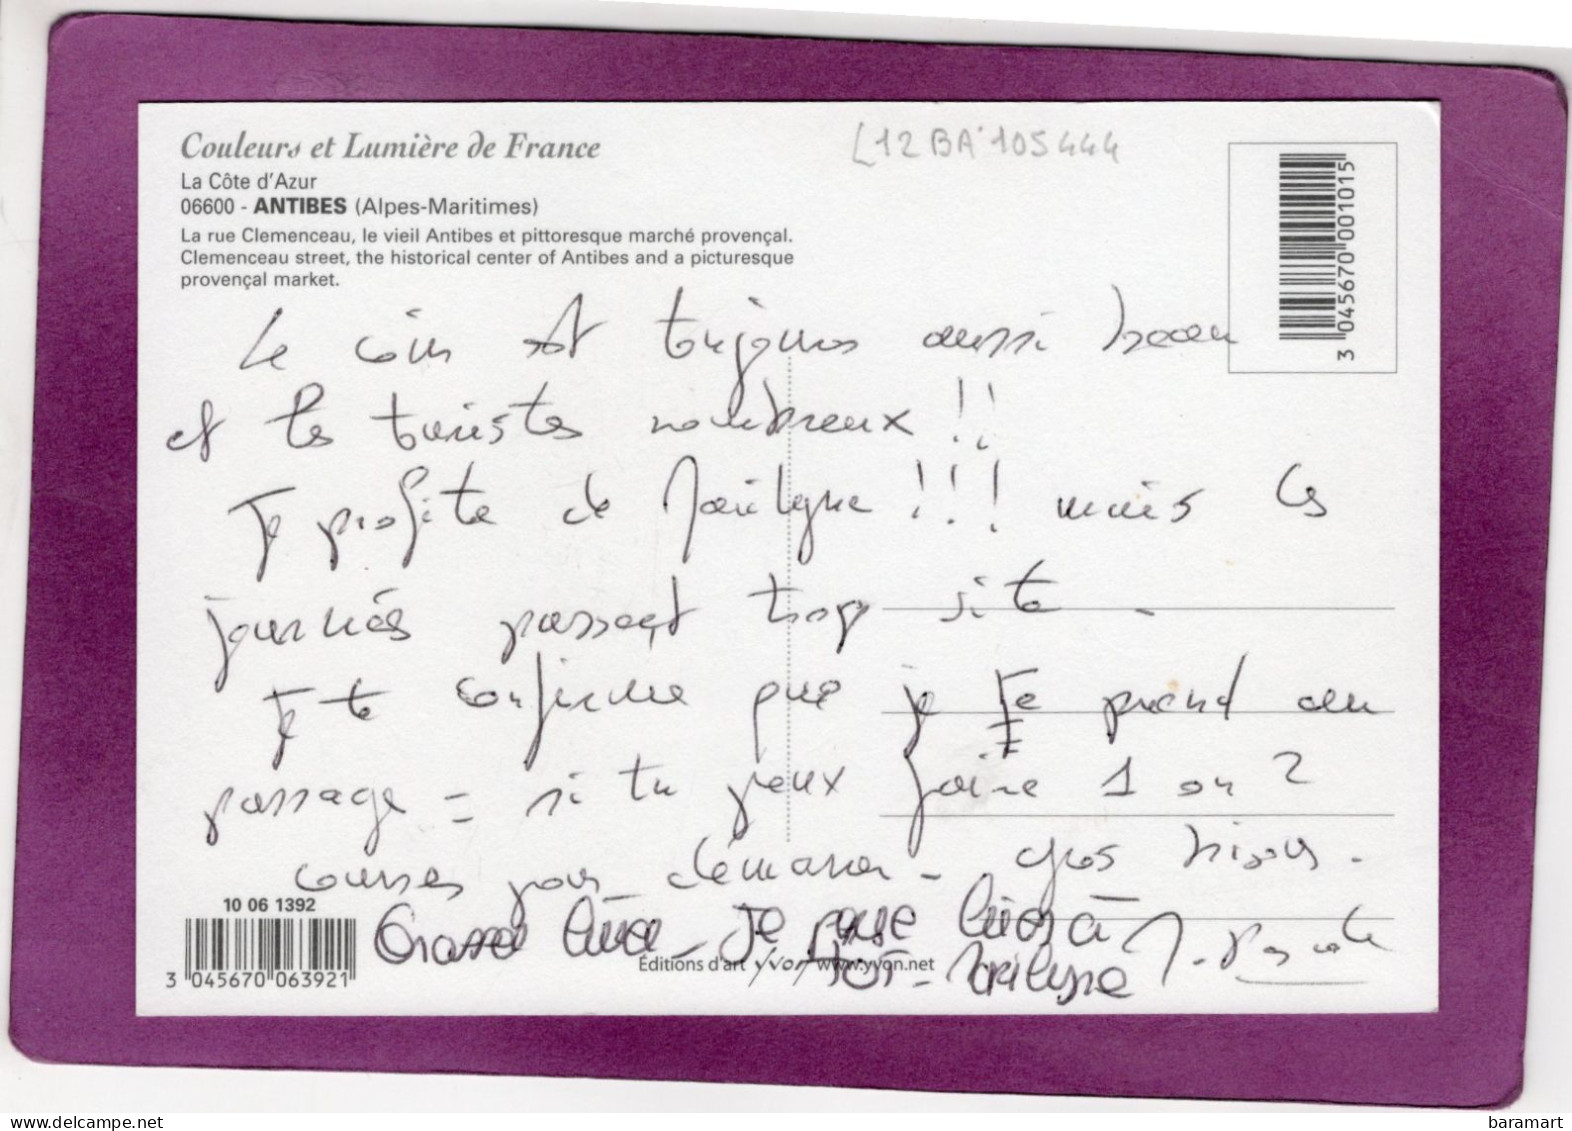 Couleurs et Lumière de France
[12BA'105444
La Côte d'Azur
06600 - ANTIBES (Alpes-Maritimes)
La rue Clemenceau, le vieil Antibes et pittoresque marché provençal.
Clemenceau street, the historical center of Antibes and a picturesque
provençal market.
3 045670 001015
Le coin est toujours aussi beau
et les touristes nombreux !!
Je profite de Marilyne !!! mais les
journées passent trop vite -
Je te confirme que je te prend au
passage = si tu veux faire 1 ou 2
courses pour démarrer - gros bisous -
10 06 1392
3 045670 063921
Je pense bien à
toi - Marilyne
Editions d'art yvon www.yvon.net